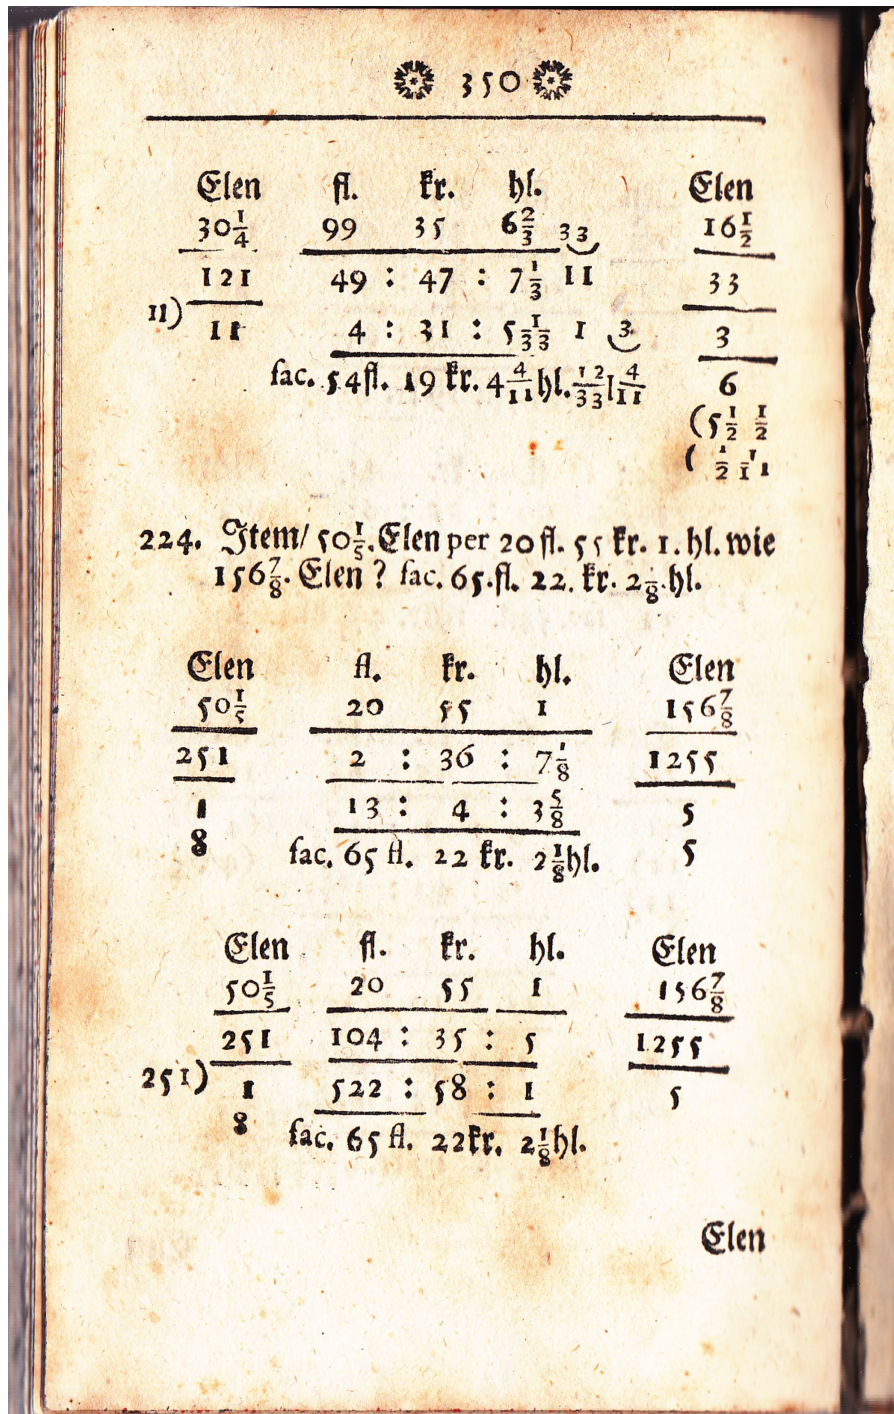 350
Elen fl. kr. hl. Elen
30 1/4 99 35 6 2/3 33 16 1/2
121 49 : 47 : 7 1/3 11 33
11) 11 4 : 31 : 5 1/33 1 3 3
fac. 54 fl. 19 kr. 4 4/11 hl. 12/33 | 4/11 6
(5 1/2 1/2
( 1/2 1/1 1
224. Item/ 50 1/5. Elen per 20 fl. 55 kr. 1. hl. wie
156 7/8. Elen ? fac. 65. fl. 22. kr. 2 1/8. hl.
Elen fl. kr. hl. Elen
50 1/5 20 55 1 156 7/8
251 2 : 36 : 7 1/8 1255
1 13 : 4 : 3 5/8 5
8 fac. 65 fl. 22 kr. 2 1/8 hl. 5
Elen fl. kr. hl. Elen
50 1/5 20 55 1 156 7/8
251 104 : 35 : 5 1255
251) 1 522 : 58 : 1 5
8 fac. 65 fl. 22 kr. 2 1/8 hl.
Elen